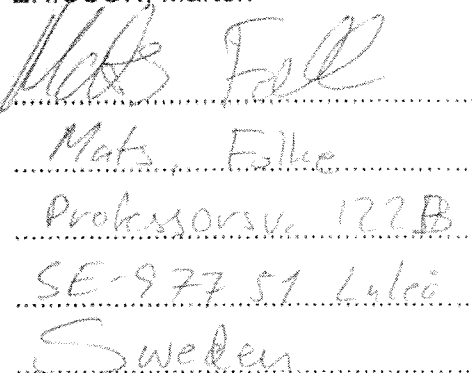 Mats Falk
Mats Folke
Professorsv. 122B
SE-977 51 Luleå
Sweden